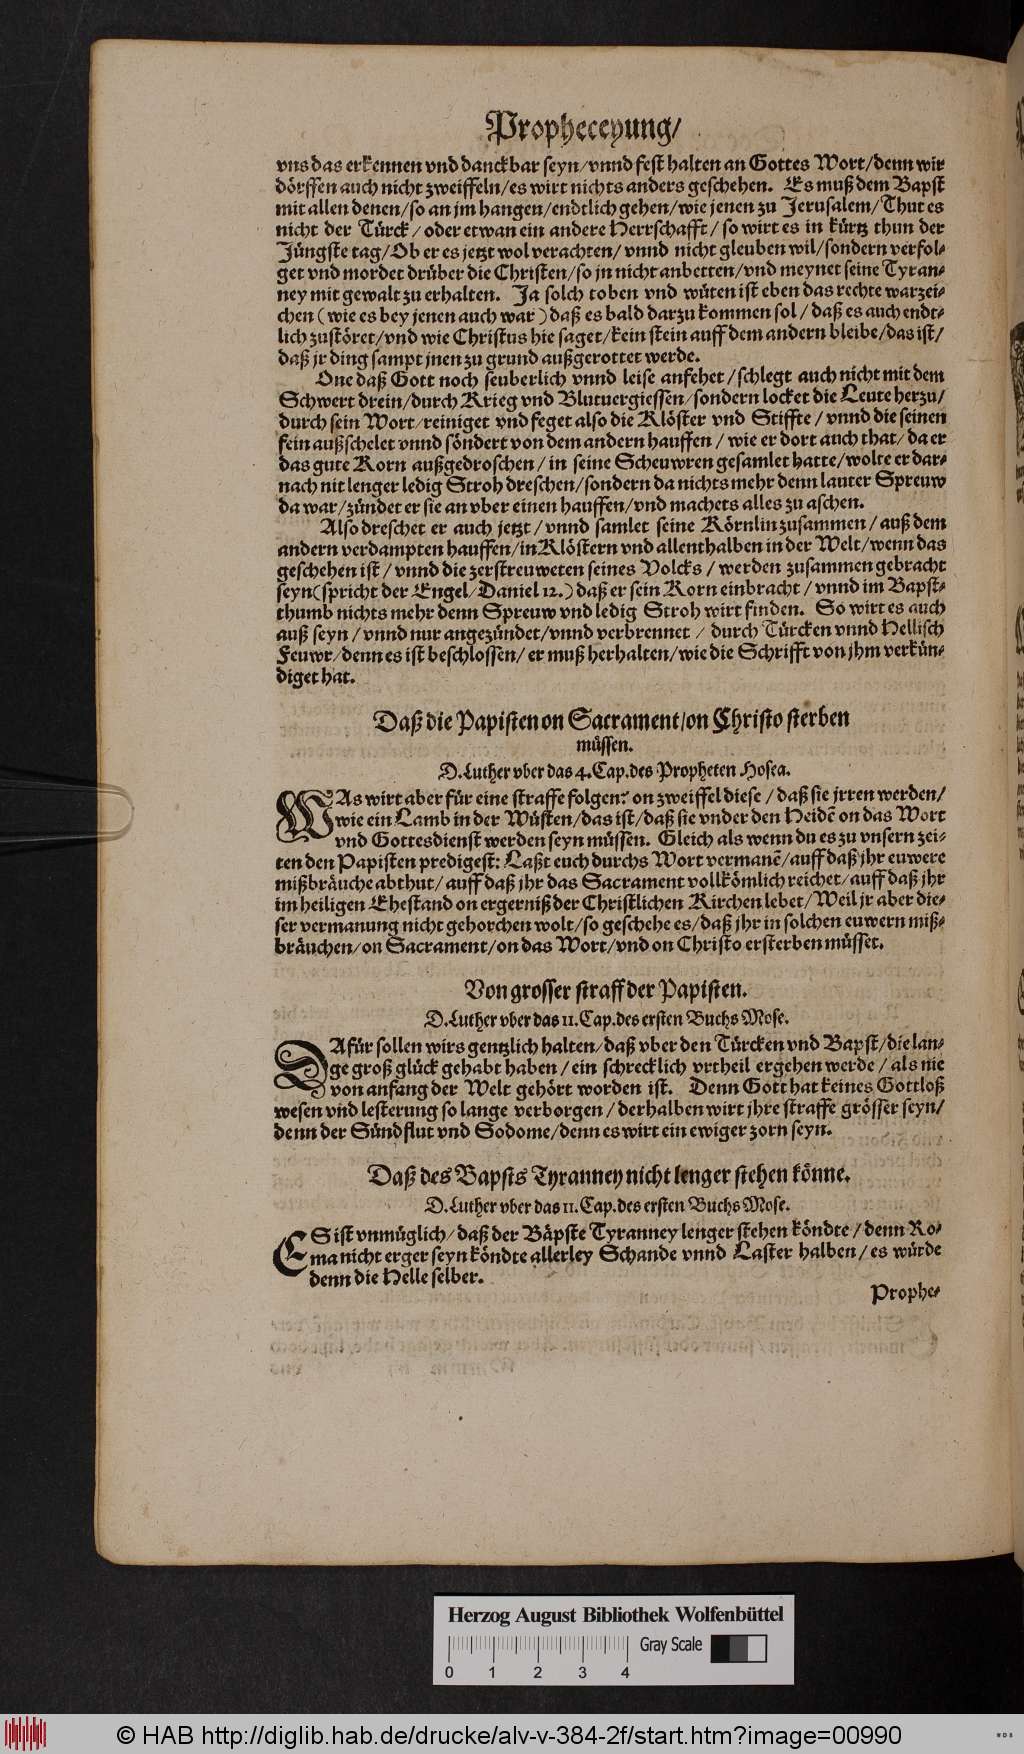 Propheceyung/
vns das erkennen vnd danckbar seyn/vnnd fest halten an Gottes Wort/denn wir
dörffen auch nicht zweiffeln/es wirt nichts anders geschehen. Es muß dem Bapst
mit allen denen/so an jm hangen/endtlich gehen/wie jenen zu Jerusalem/Thut es
nicht der Türck/oder etwan ein andere Herrschafft/so wirt es in kürtz thun der
Jüngste tag/Ob er es jetzt wol verachten/vnnd nicht gleuben wil/sondern verfol-
get vnd mordet drüber die Christen/so jn nicht anbetten/vnd meynet seine Tyran-
ney mit gewalt zu erhalten. Ja solch toben vnd wüten ist eben das rechte warzei-
chen (wie es bey jenen auch war) daß es bald darzu kommen sol/daß es auch endt-
lich zustöret/vnd wie Christus hie saget/kein stein auff dem andern bleibe/das ist/
daß jr ding sampt jnen zu grund außgerottet werde.
One daß Gott noch seuberlich vnnd leise anfehet/schlegt auch nicht mit dem
Schwert drein/durch Krieg vnd Blutuergiessen/sondern locket die Leute herzu/
durch sein Wort/reiniget vnd feget also die Klöster vnd Stiffte/vnnd die seinen
fein außschelet vnnd söndert von dem andern hauffen/wie er dort auch that/da er
das gute Korn außgedroschen/in seine Scheuwren gesamlet hatte/wolte er dar-
nach nit lenger ledig Stroh dreschen/sondern da nichts mehr denn lauter Spreuw
da war/zündet er sie an vber einen hauffen/vnd machets alles zu aschen.
Also dreschet er auch jetzt/vnnd samlet seine Körnlin zusammen/auß dem
andern verdampten hauffen/in Klöstern vnd allenthalben in der Welt/wenn das
geschehen ist/vnnd die zerstreuweten seines Volcks/werden zusammen gebracht
seyn (spricht der Engel/Daniel 12.) daß er sein Korn einbracht/vnnd im Bapst-
thumb nichts mehr denn Spreuw vnd ledig Stroh wirt finden. So wirt es auch
auß seyn/vnnd nur angezündet/vnnd verbrennet/durch Türcken vnnd Hellisch
Feuwr/denn es ist beschlossen/er muß herhalten/wie die Schrifft von jhm verkün-
diget hat.
Daß die Papisten on Sacrament/on Christo sterben
müssen.
D. Luther vber das 4. Cap. des Propheten Hosea.
WAs wirt aber für eine straffe folgen? on zweiffel diese/daß sie jrren werden/
wie ein Lamb in der Wüsten/das ist/daß sie vnder den Heidē on das Wort
vnd Gottesdienst werden seyn müssen. Gleich als wenn du es zu vnsern zei-
ten den Papisten predigest: Laßt euch durchs Wort vermanē/auff daß jhr euwere
mißbräuche abthut/auff daß jhr das Sacrament vollkömlich reichet/auff daß jhr
im heiligen Ehestand on ergerniß der Christlichen Kirchen lebet/Weil jr aber die-
ser vermanung nicht gehorchen wolt/so geschehe es/daß jhr in solchen euwern miß-
bräuchen/on Sacrament/on das Wort/vnd on Christo ersterben müsset.
Von grosser straff der Papisten.
D. Luther vber das 11. Cap. des ersten Buchs Mose.
DAfür sollen wirs gentzlich halten/daß vber den Türcken vnd Bapst/die lan-
ge groß glück gehabt haben/ein schrecklich vrtheil ergehen werde/als nie
von anfang der Welt gehört worden ist. Denn Gott hat keines Gottloß
wesen vnd lesterung so lange verborgen/derhalben wirt jhre straffe grösser seyn/
denn der Sündflut vnd Sodome/denn es wirt ein ewiger zorn seyn.
Daß des Bapsts Tyranney nicht lenger stehen könne.
D. Luther vber das 11. Cap. des ersten Buchs Mose.
ES ist vnmüglich/daß der Bäpste Tyranney lenger stehen köndte/denn Ro-
ma nicht erger seyn köndte allerley Schande vnnd Laster halben/es würde
denn die Helle selber.
Prophe-
Herzog August Bibliothek Wolfenbüttel
Gray Scale
0 1 2 3 4
© HAB http://diglib.hab.de/drucke/alv-v-384-2f/start.htm?image=00990